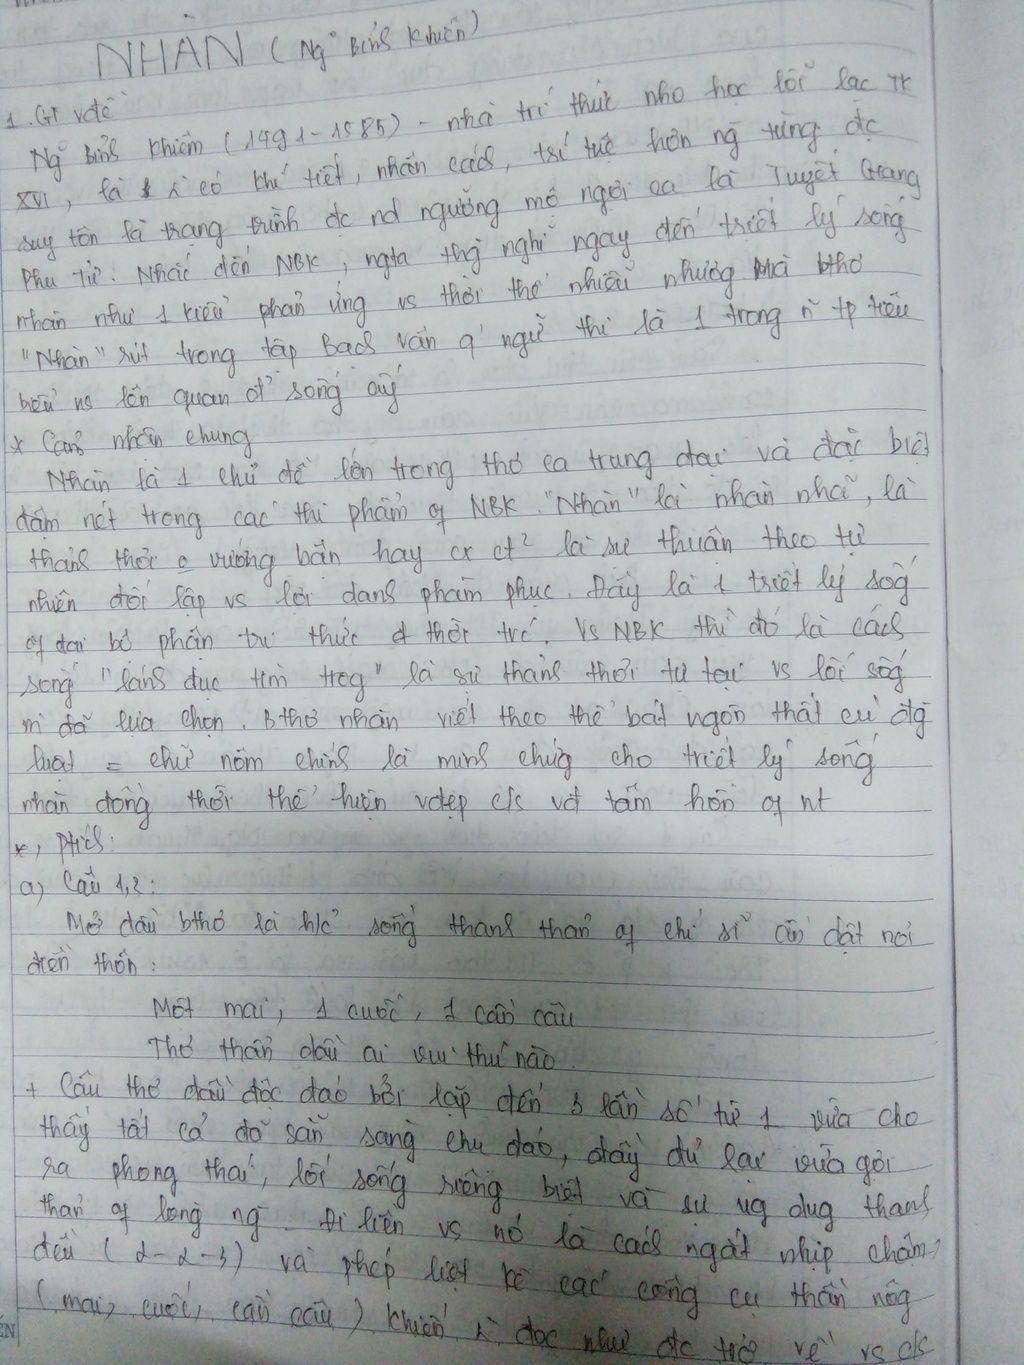 NHÀN (Ng~ Bỉnh Khiêm)
1. GT vđề
Ng~ Bỉnh Khiêm (1491-1585) - nhà trí thức nho học lỗi lạc TK
XVI, là 1 có khí tiết, nhân cách, trí tuệ hơn ng từng đc
suy tôn là trạng trình đc nd ngưỡng mộ ngợi ca là Tuyết Giang
Phu tử. Nhắc đến NBK, ngta thg nghĩ ngay đến triết lý sống
nhàn như 1 kiểu phản ứng vs thời thế nhiễu nhương mà bthơ
"Nhàn" rút trong tập Bạch vân q' ngữ thi là 1 trong n~ tp tiêu
biểu vs lên quan đ' sống ấy
* Cảm nhận chung
Nhàn là 1 chủ đề lớn trong thơ ca trung đại và đặc biệt
đậm nét trong các thi phẩm of NBK. "Nhàn" là nhàn nhã, là
thảnh thơi o vướng bận hay là sự thuận theo tự
nhiên đối lập vs lợi danh phàm phục. Đây là 1 triết lý sống
of đại bộ phận tri thức thời trc. Vs NBK thì đó là cách
sống "lánh đục tìm trog" là sự thảnh thơi tự tại vs lối sốg
m` đã lựa chọn. Bthơ nhàn viết theo thể bát ngôn thất cú đg
luật = chữ nôm chính là minh chứg cho triết lý sống
nhàn đồng thời thể hiện vđẹp c/s vđ tâm hồn of nt
*, ptích:
a) Câu 1,2:
Mở đầu bthơ là h/c' sống thanh thản of chí sĩ ẩn dật nơi
điền thôn:
Một mai, 1 cuốc, 1 cần câu
Thơ thẩn dầu ai vui thú nào
+ Câu thơ đầu độc đáo bởi lặp đến 3 lần số từ 1 vừa cho
thấy tất cả đã sẵn sàng chu đáo, đầy đủ lại vừa gợi
ra phong thái, lối sống riêng biệt và sự ug dug thanh
thản of lòng ng. Đi liền vs nó là cách ngắt nhịp chậm,
đều (2-2-3) và phép liệt kê các công cụ thân nông
(mai, cuốc, cần câu) khiến đọc như đc trở về vs c/s